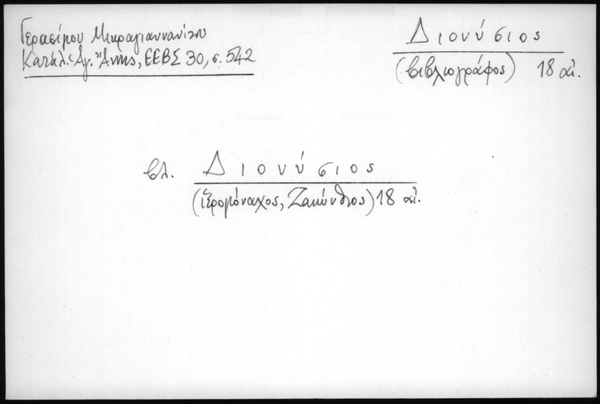 Γερασίμου Μικραγιαννανίτου
Κατάλ. Ἁγ. Ἄννης, ΕΕΒΣ 30, σ. 542
Διονύσιος
(βιβλιογράφος) 18 αἰ.
βλ. Διονύσιος
(ἱερομόναχος, Ζακύνθιος) 18 αἰ.